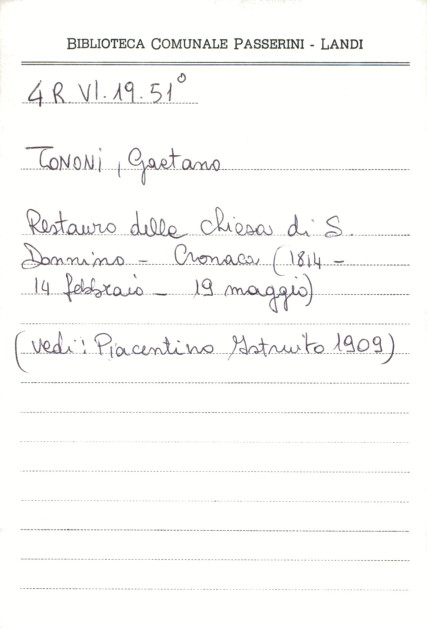 BIBLIOTECA COMUNALE PASSERINI - LANDI
4R VI.19.51°
TONONI, Gaetano
Restauro della chiesa di S.
Donnino - Cronaca (1814 -
14 febbraio - 19 maggio)
(vedi: Piacentino Istruito 1909)